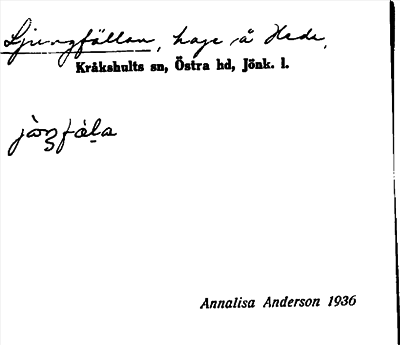 Ljungfällan, hage å Hede,
Kråkshults sn, Östra hd, Jönk. l.
Annalisa Anderson 1936